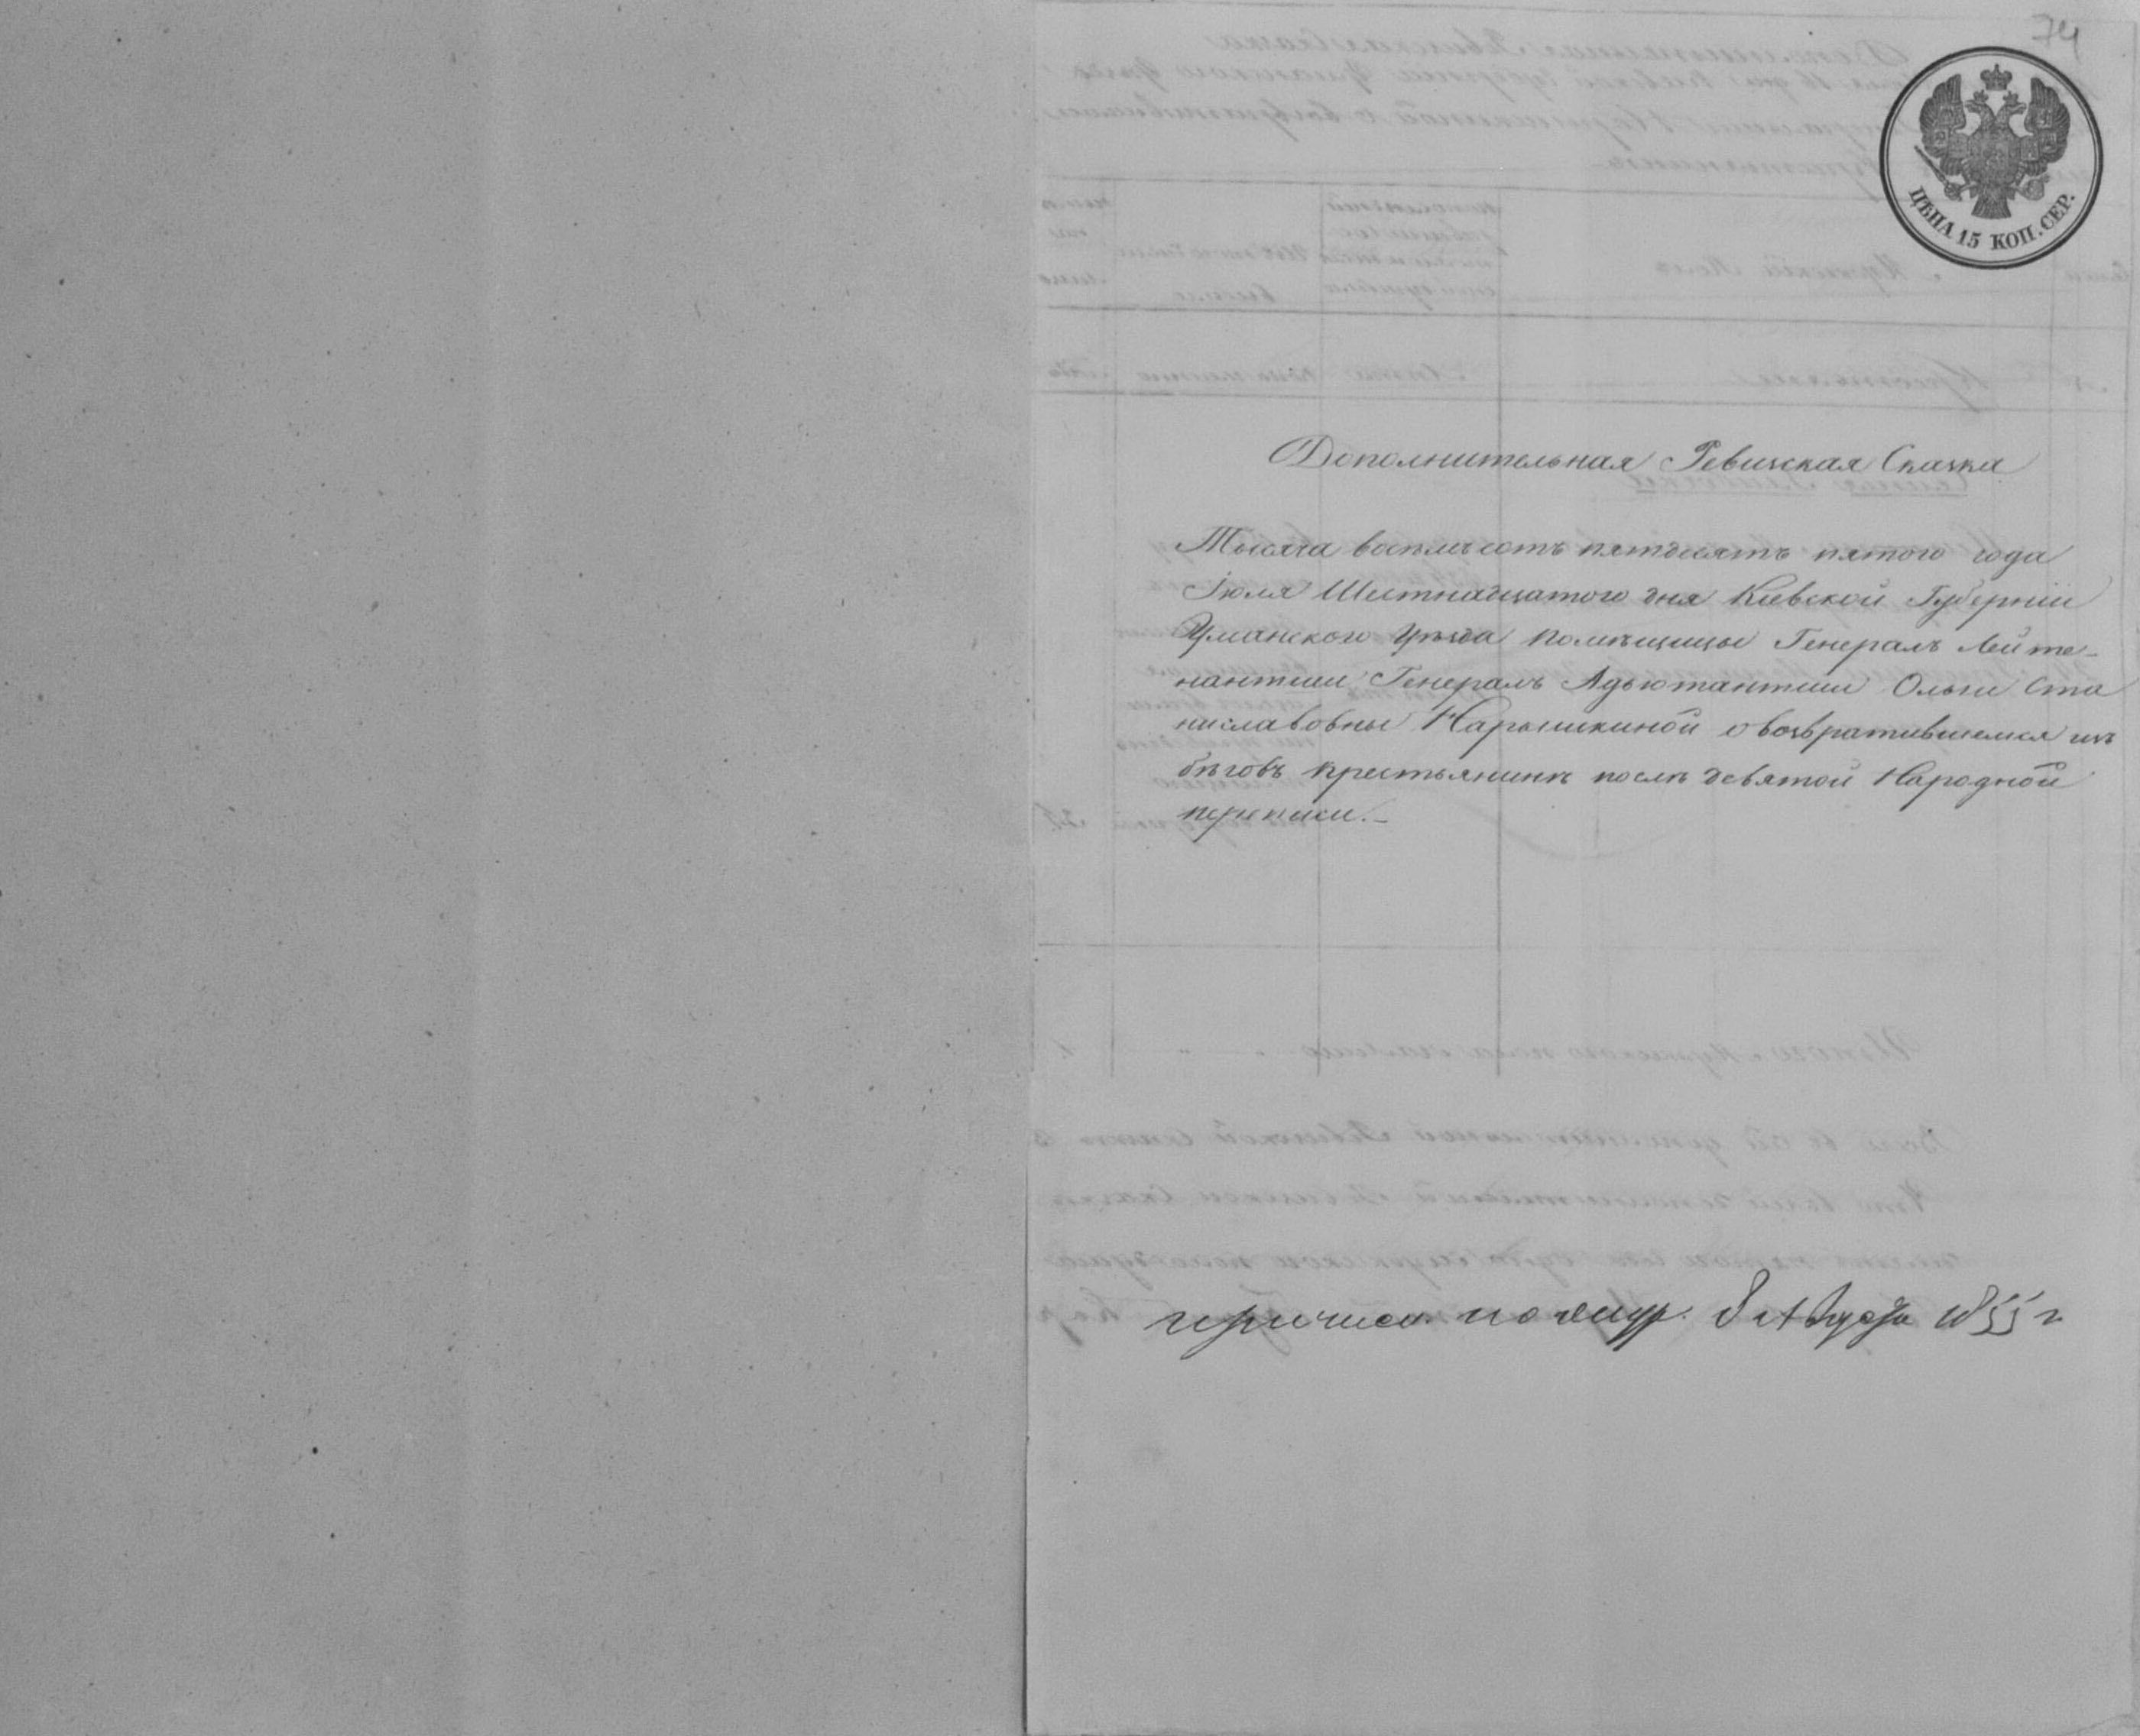 74
ЦѢНА 15 КОП. СЕР.
Дополнительная Ревизская Сказка
Тысяча восемьсотъ пятдесятъ пятого года
Іюля Шестнадцатого дня Кіевской Губерніи
Уманского Уѣзда помѣщицы Генералъ Лейте-
нантши Генералъ Адьютантши Ольги Ста
ниславовны Нарышкиной о возвратившемся изъ
бѣговъ крестьянинѣ послѣ девятой Народной
переписи.-
1855 г